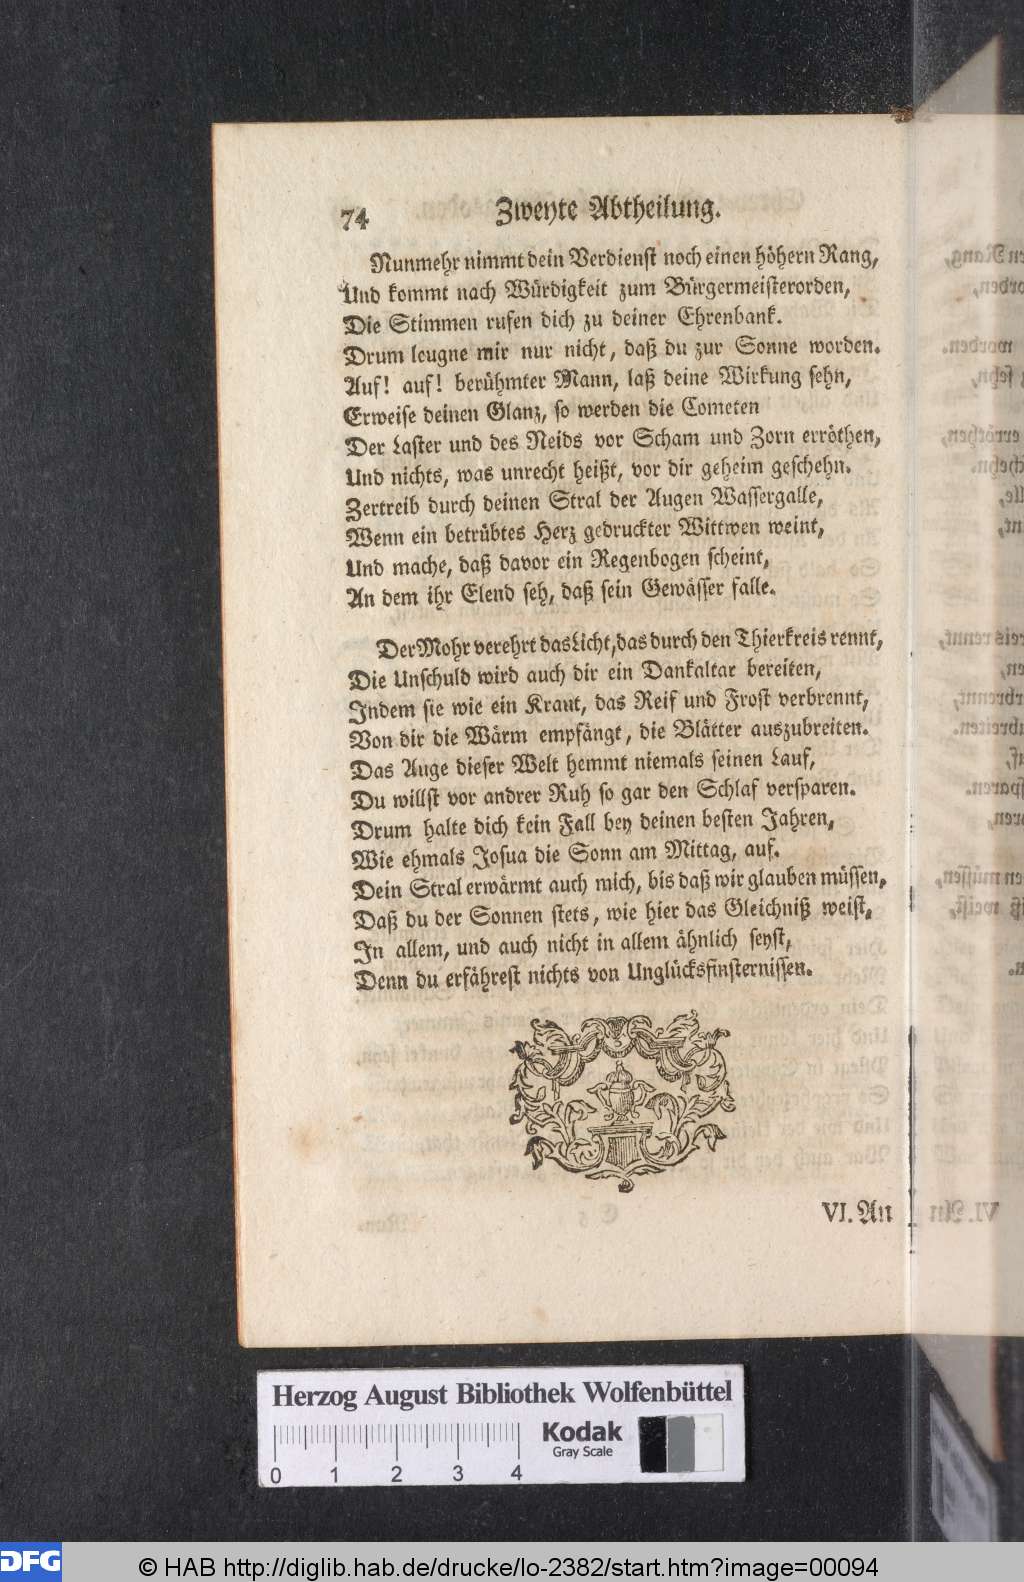 74
Zweyte Abtheilung.
Nunmehr nimmt dein Verdienst noch einen höhern Rang,
Und kommt nach Würdigkeit zum Bürgermeisterorden,
Die Stimmen rufen dich zu deiner Ehrenbank.
Drum leugne mir nur nicht, daß du zur Sonne worden.
Auf! auf! berühmter Mann, laß deine Wirkung sehn,
Erweise deinen Glanz, so werden die Cometen
Der Laster und des Neids vor Scham und Zorn erröthen,
Und nichts, was unrecht heißt, vor dir geheim geschehn.
Zertreib durch deinen Stral der Augen Wassergalle,
Wenn ein betrübtes Herz gedruckter Wittwen weint,
Und mache, daß davor ein Regenbogen scheint,
An dem ihr Elend seh, daß sein Gewässer falle.
Der Mohr verehrt das Licht, das durch den Thierkreis rennt,
Die Unschuld wird auch dir ein Dankaltar bereiten,
Indem sie wie ein Kraut, das Reif und Frost verbrennt,
Von dir die Wärm empfängt, die Blätter auszubreiten.
Das Auge dieser Welt hemmt niemals seinen Lauf,
Du willst vor andrer Ruh so gar den Schlaf versparen.
Drum halte dich kein Fall bey deinen besten Jahren,
Wie ehmals Josua die Sonn am Mittag, auf.
Dein Stral erwärmt auch mich, bis daß wir glauben müssen,
Daß du der Sonnen stets, wie hier das Gleichniß weist,
In allem, und auch nicht in allem ähnlich seyst,
Denn du erfährest nichts von Unglücksfinsternissen.
VI. An
Herzog August Bibliothek Wolfenbüttel
0 1 2 3 4
Kodak
Gray Scale
DFG
© HAB http://diglib.hab.de/drucke/lo-2382/start.htm?image=00094